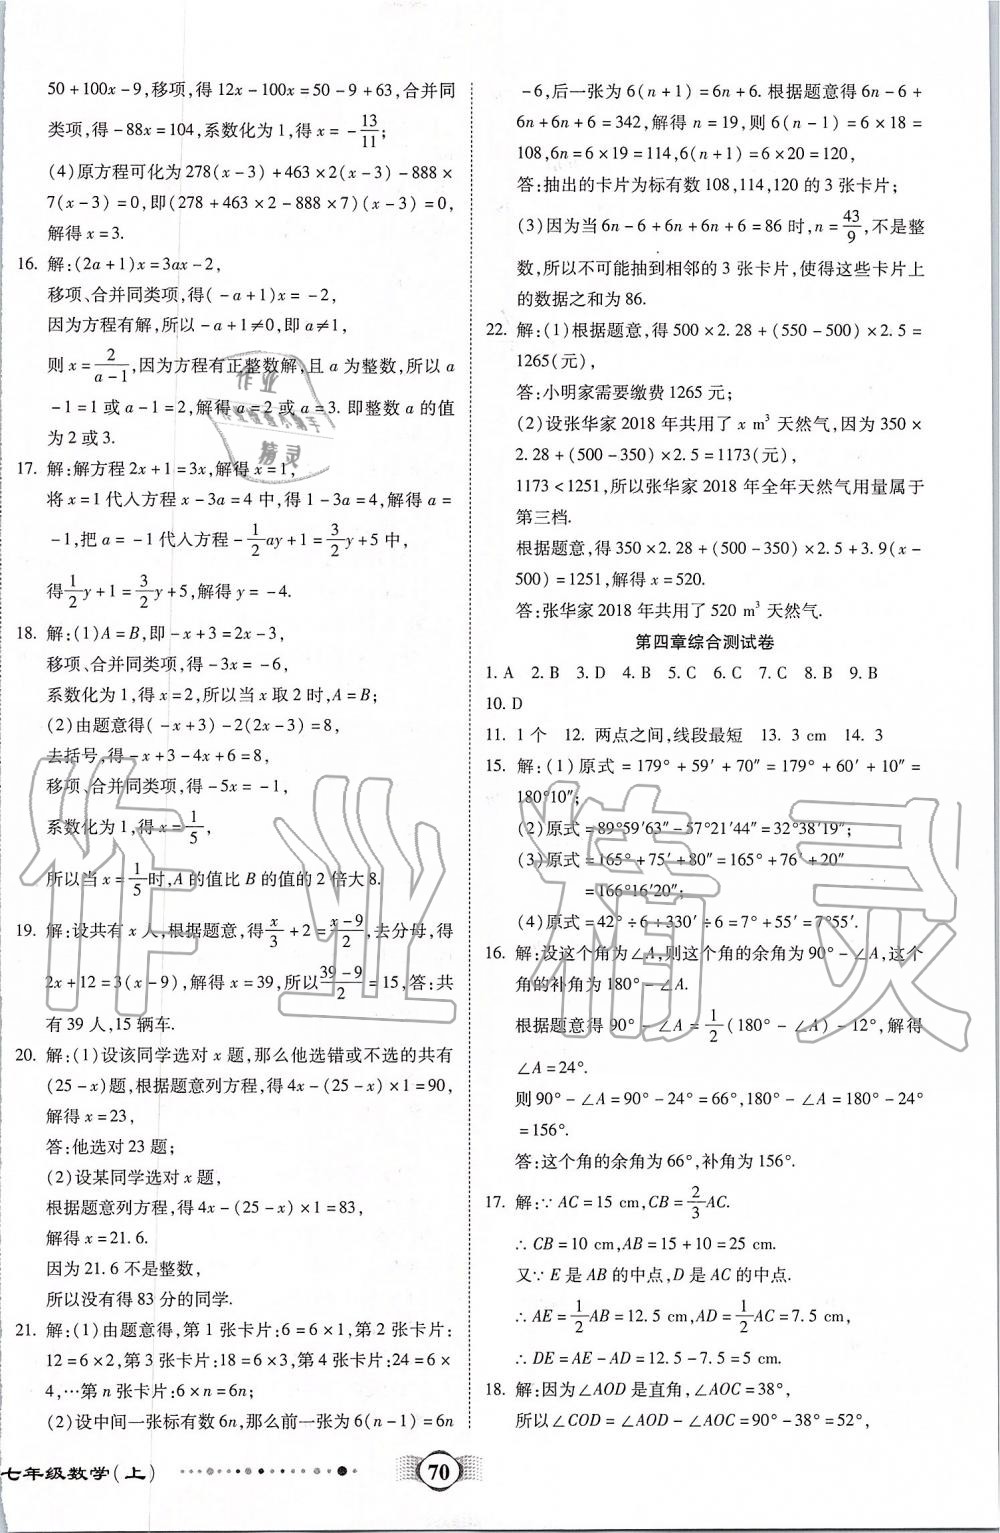 50+100x-9,移项,得12x-100x=50-9+63,合并同
类项,得-88x=104,系数化为1,得x=-13/11;
(4)原方程可化为278(x-3)+463×2(x-3)-888×
7(x-3)=0,即(278+463×2-888×7)(x-3)=0,
解得x=3.
16. 解:(2a+1)x=3ax-2,
移项、合并同类项,得(-a+1)x=-2,
因为方程有解,所以-a+1≠0,即a≠1,
则x=2/(a-1),因为方程有正整数解,且a为整数,所以a
-1=1或a-1=2,解得a=2或a=3. 即整数a的值
为2或3.
17. 解:解方程2x+1=3x,解得x=1,
将x=1代入方程x-3a=4中,得1-3a=4,解得a=
-1,把a=-1代入方程-1/2ay+1=3/2y+5中,
得1/2y+1=3/2y+5,解得y=-4.
18. 解:(1)A=B,即-x+3=2x-3,
移项、合并同类项,得-3x=-6,
系数化为1,得x=2,所以当x取2时,A=B;
(2)由题意得(-x+3)-2(2x-3)=8,
去括号,得-x+3-4x+6=8,
移项、合并同类项,得-5x=-1,
系数化为1,得x=1/5,
所以当x=1/5时,A的值比B的值的2倍大8.
19. 解:设共有x人,根据题意,得x/3+2=(x-9)/2,去分母,得
2x+12=3(x-9),解得x=39,所以(39-9)/2=15,答:共
有39人,15辆车.
20. 解:(1)设该同学选对x题,那么他选错或不选的共有
(25-x)题,根据题意列方程,得4x-(25-x)×1=90,
解得x=23,
答:他选对23题;
(2)设某同学选对x题,
根据题意列方程,得4x-(25-x)×1=83,
解得x=21.6.
因为21.6不是整数,
所以没有得83分的同学.
21. 解:(1)由题意得,第1张卡片:6=6×1,第2张卡片:
12=6×2,第3张卡片:18=6×3,第4张卡片:24=6×
4,…第n张卡片:6×n=6n;
(2)设中间一张标有数6n,那么前一张为6(n-1)=6n
-6,后一张为6(n+1)=6n+6. 根据题意得6n-6+
6n+6n+6=342,解得n=19,则6(n-1)=6×18=
108,6n=6×19=114,6(n+1)=6×20=120,
答:抽出的卡片为标有数108,114,120的3张卡片;
(3)因为当6n-6+6n+6n+6=86时,n=43/9,不是整
数,所以不可能抽到相邻的3张卡片,使得这些卡片上
的数据之和为86.
22. 解:(1)根据题意,得500×2.28+(550-500)×2.5=
1265(元),
答:小明家需要缴费1265元.
(2)设张华家2018年共用了x m³天然气,因为350×
2.28+(500-350)×2.5=1173(元),
1173<1251,所以张华家2018年全年天然气用量属于
第三档.
根据题意,得350×2.28+(500-350)×2.5+3.9(x-
500)=1251,解得x=520.
答:张华家2018年共用了520 m³天然气.
第四章综合测试卷
1. A 2. B 3. D 4. B 5. C 6. C 7. C 8. B 9. B
10. D
11. 1个 12. 两点之间,线段最短 13. 3 cm 14. 3
15. 解:(1)原式=179°+59′+70″=179°+60′+10″=
180°10″;
(2)原式=89°59′63″-57°21′44″=32°38′19″;
(3)原式=165°+75′+80″=165°+76′+20″
=166°16′20″;
(4)原式=42°÷6+330′÷6=7°+55′=7°55′.
16. 解:设这个角为∠A,则这个角的余角为90°-∠A,这个
角的补角为180°-∠A.
根据题意得90°-∠A=1/2(180°-∠A)-12°,解得
∠A=24°.
则90°-∠A=90°-24°=66°,180°-∠A=180°-24°
=156°.
答:这个角的余角为66°,补角为156°.
17. 解:∵AC=15 cm,CB=2/3AC.
∴CB=10 cm,AB=15+10=25 cm.
又∵E是AB的中点,D是AC的中点.
∴AE=1/2AB=12.5 cm,AD=1/2AC=7.5 cm,
∴DE=AE-AD=12.5-7.5=5 cm.
18. 解:因为∠AOD是直角,∠AOC=38°,
所以∠COD=∠AOD-∠AOC=90°-38°=52°,
七年级数学(上)
70
作业精灵
作业
精灵